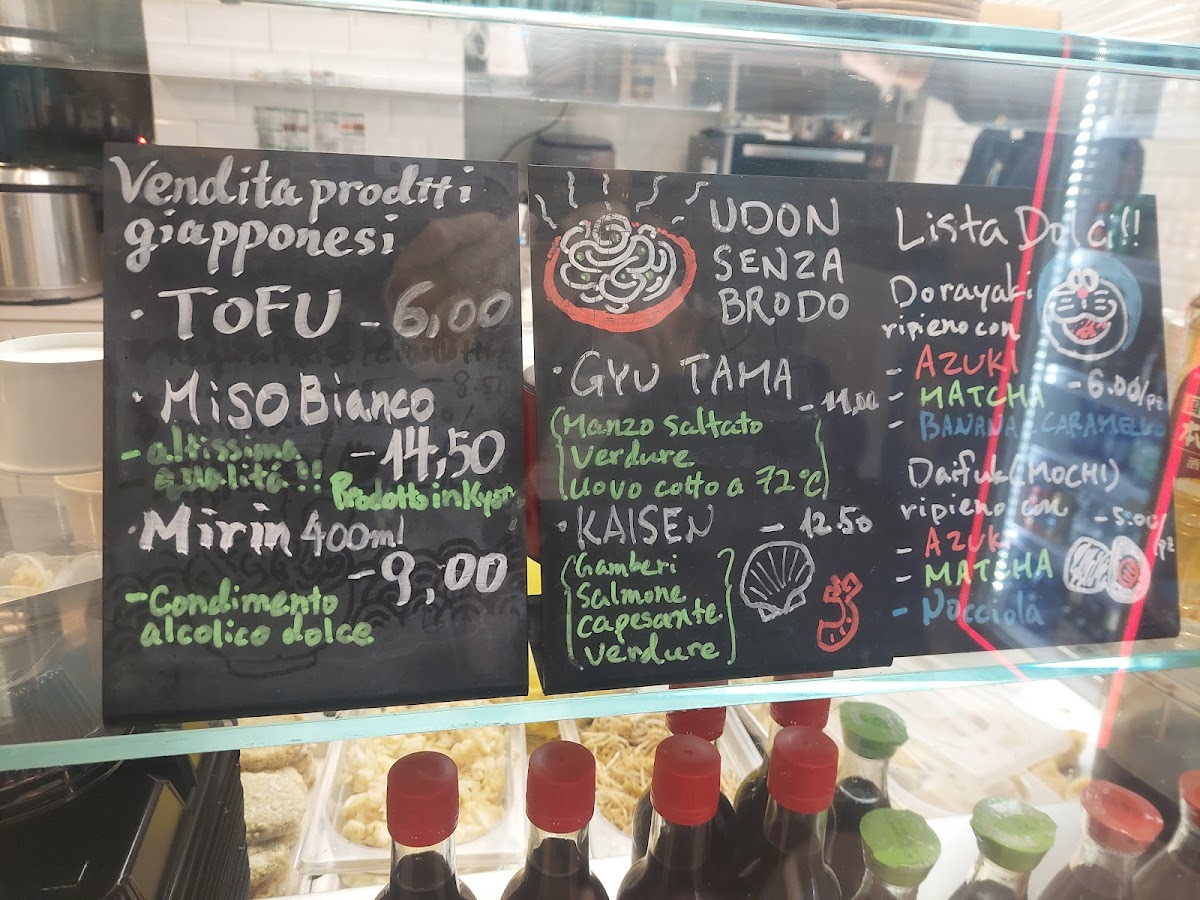 Vendita prodtti
giapponesi
· TOFU - 6,00
· Miso Bianco
- altissima - 14,50
qualità!!
Prodotto in Kyoto
· Mirin 400ml
- 9,00
- Condimento
alcolico dolce
UDON
SENZA
BRODO
· GYU TAMA
- 11,00
(Manzo saltato
verdure
uovo cotto a 72°C)
· KAISEN - 12.50
Gamberi
salmone
capesante
verdure
Lista Dolci!!
Dorayaki
ripieno con
- AZUKI
- MATCHA - 6.00/pz
- BANANA CARAMELLO
Daifuku (MOCHI)
ripieno con - 5.00/pz
- AZUKI
- MATCHA
- Nocciola